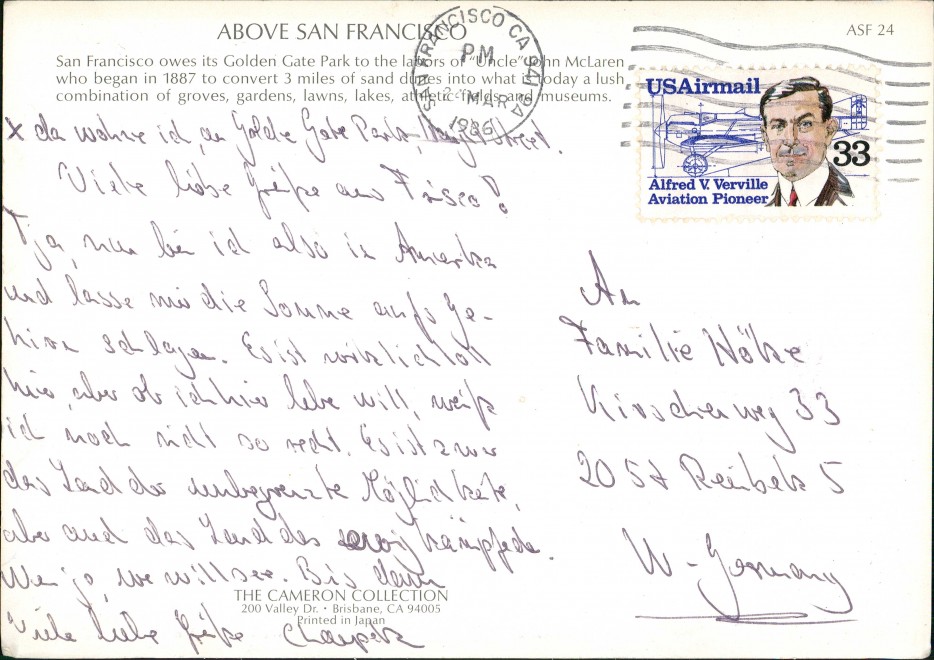 ABOVE SAN FRANCISCO
ASF 24
San Francisco owes its Golden Gate Park to the labors of "Uncle" John McLaren
who began in 1887 to convert 3 miles of sand dunes into what is today a lush
combination of groves, gardens, lawns, lakes, athletic fields and museums.
SAN FRANCISCO CA
PM
MAR
1986
USAirmail
33
Alfred V. Verville
Aviation Pioneer
x da wohne ich, am Golden Gate Park, Street.
Viele liebe Grüße aus Frisco!
Tja, nun bin ich also in Amerika
und lasse mir die Sonne aufs Ge-
hirn schlagen. Es ist wirklich toll
hier, aber ob ich hier leben will, weiß
ich noch nicht so recht. Es ist zwar
das Land der unbegrenzte Möglichkeiten,
aber auch das Land des ewig kämpfeden.
Wen jo, we will see. Bis dann
Viele liebe Grüße
THE CAMERON COLLECTION
200 Valley Dr. • Brisbane, CA 94005
Printed in Japan
An
Familie
Kirschenweg 33
2057 Reinbek 5
W-Germany